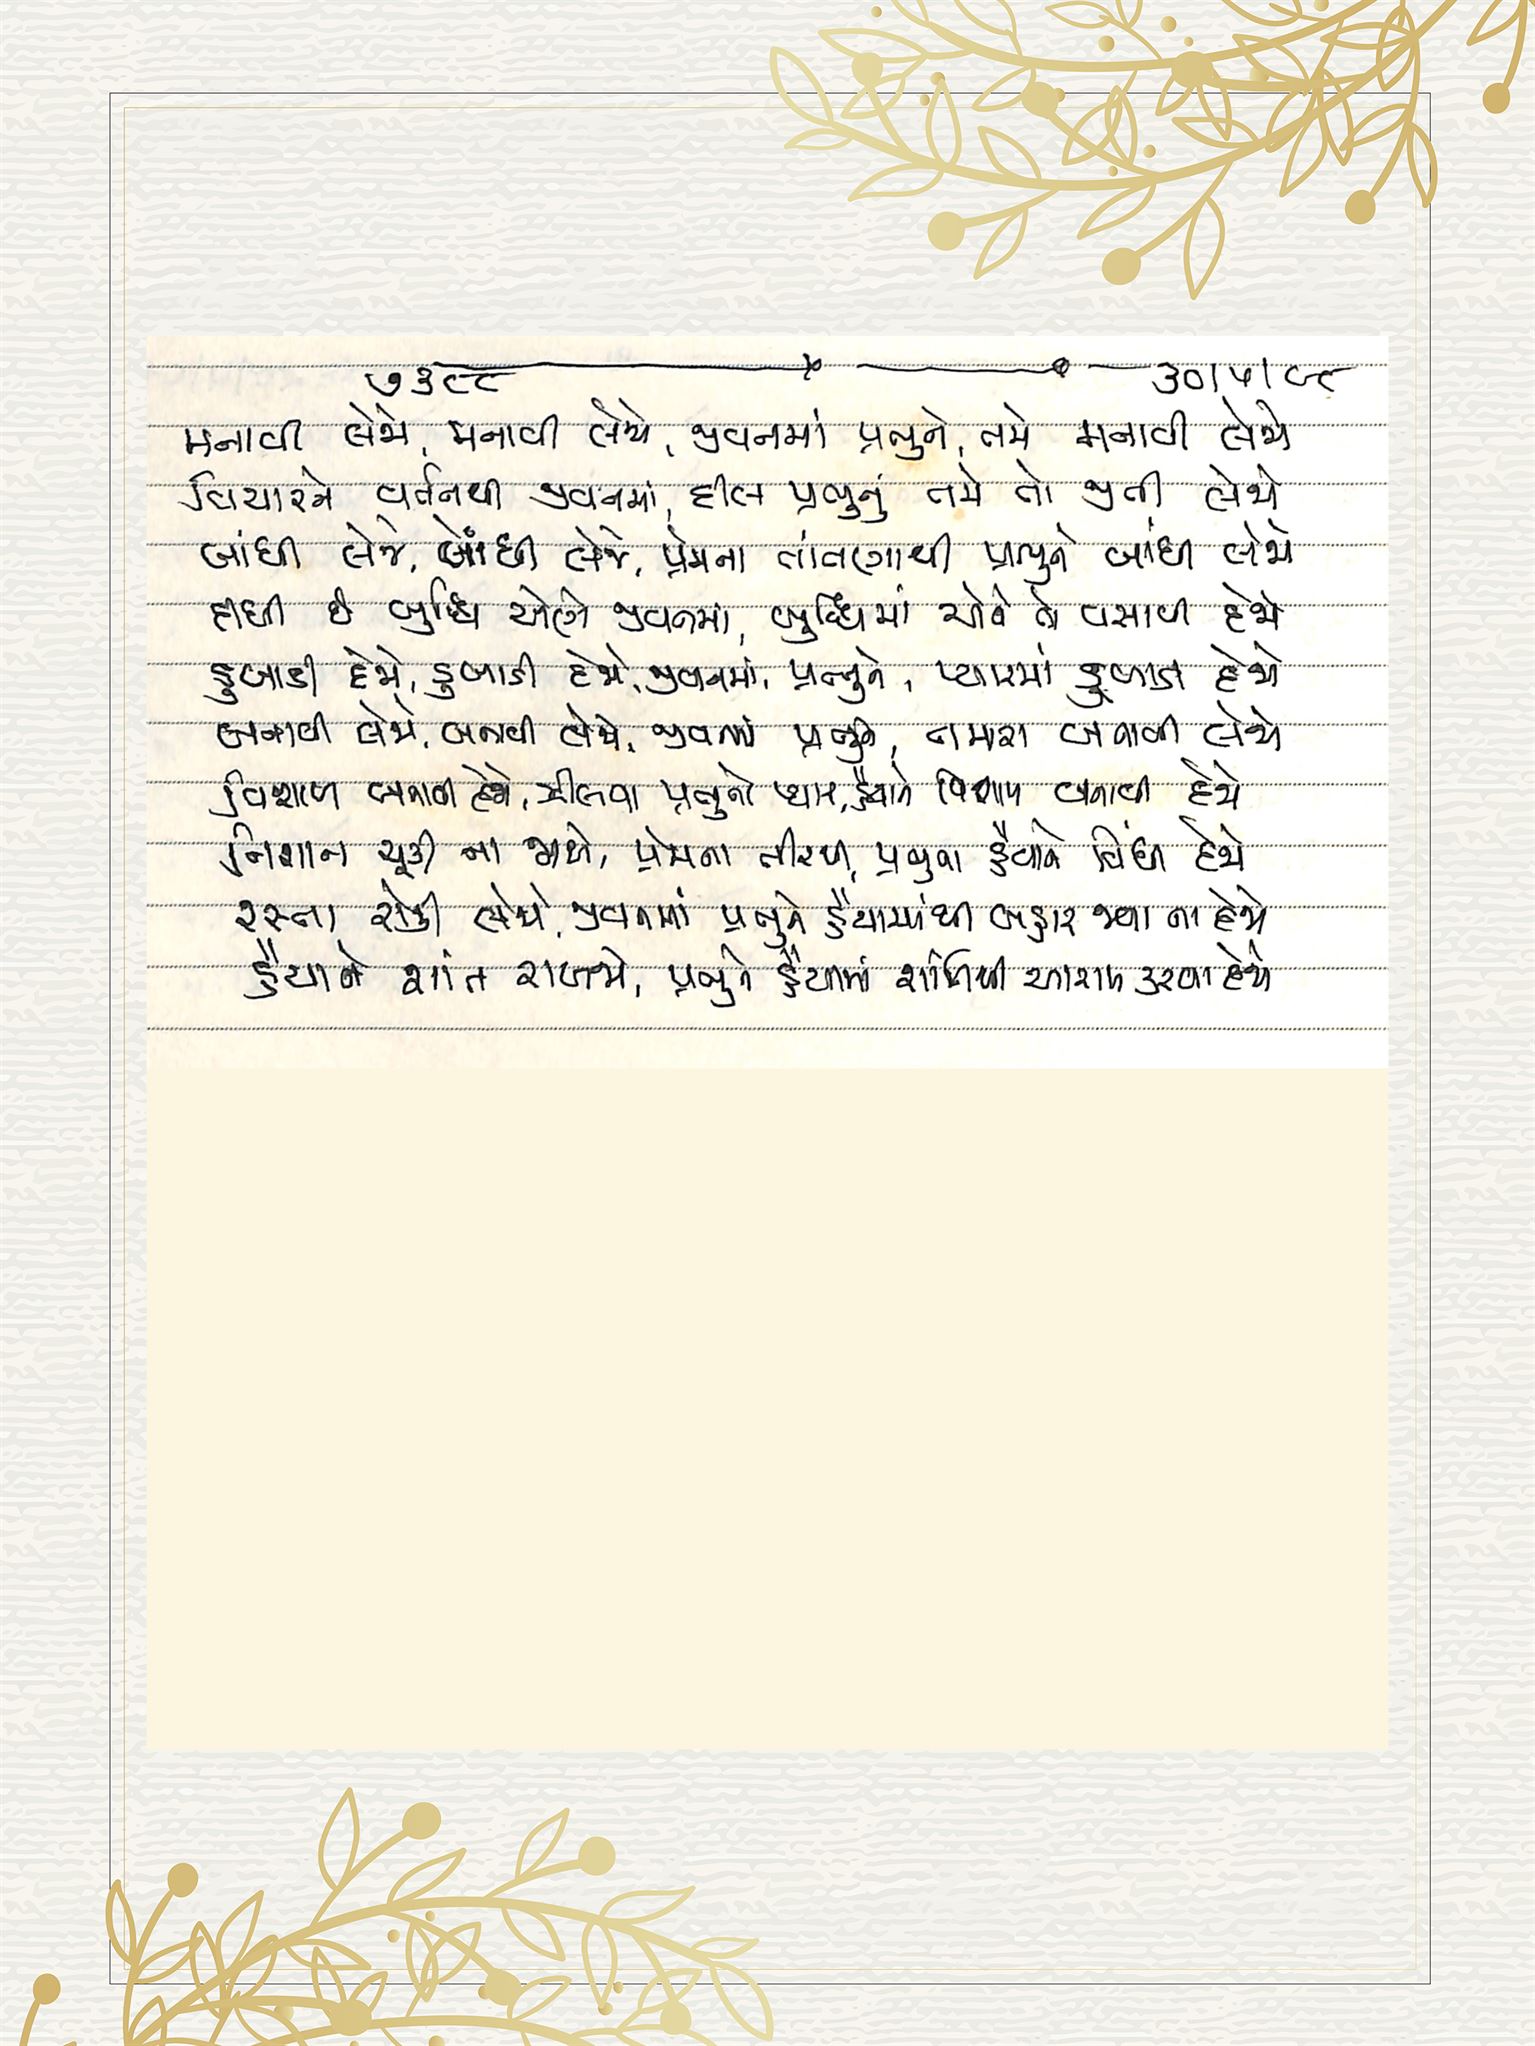 ૭૩૯૯ ૩૦/૫/૯૮
મનાવી લેજે, મનાવી લેજે, જીવનમાં પ્રભુને, તમે મનાવી લેજો
વિચારને વર્તનથી જીવનમાં, દીલ પ્રભુનું તમે તો જીતી લેજો
બાંધી લેજે, બાંધી લેજે, પ્રેમના તાંતણાથી પ્રભુને બાંધી લેજો
દીધી છે બુદ્ધિ એણે જીવનમાં, બુદ્ધિમાં એને તો વસાવી દેજો
ડુબાડી દેજો, ડુબાડી દેજો, જીવનમાં, પ્રભુને, પ્યારમાં ડુબાડી દેજો
બનાવી લેજો, બનાવી લેજો, જીવનમાં પ્રભુને, તમારા બનાવી લેજો
વિશાળ બનાવી દેજો, ઝીલવા પ્રભુનો પ્યાર, હૈયાને વિશાળ બનાવી દેજો
નિશાન ચૂકી ના જાજો, પ્રેમના તીરથી, પ્રભુના હૈયાને વિંધી દેજો
રસ્તા રોકી લેજો, જીવનમાં પ્રભુને હૈયામાંથી બહાર જાવા ના દેજો
હૈયાને શાંત રાખજો, પ્રભુને હૈયામાં શાંતિથી આરામ કરવા દેજો